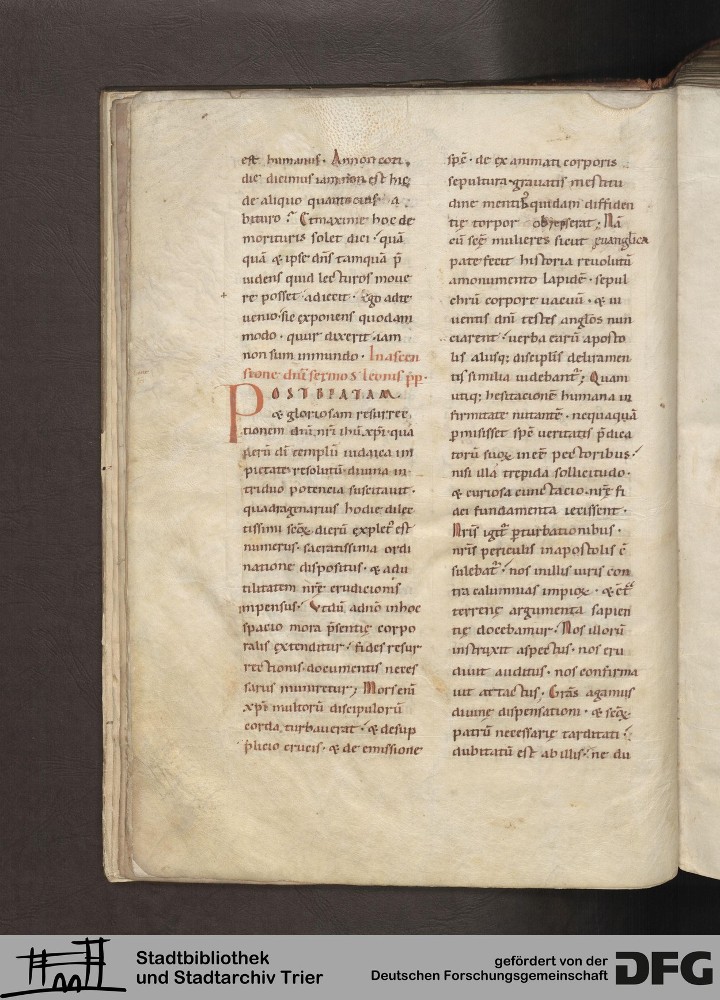 est humanus. An non coti,
die dicimus iam non est hic
de aliquo quantocius a,
bituro? Et maxime hoc de
morituris solet dici. quā
quā & ipse dn̄s tamquā p̄
uidens quid lecturos moue
re posset. adiecit. Ego ad te
uenio. sic exponens quodam
modo. quur dixerit. iam
non sum in mundo. In ascen
sione dn̄i sermo s̄ leonis pp̄.
POST BEATAM
& gloriosam resurrec
tionem dn̄i nr̄i ihū xp̄i. qua
uerū dī templū iudaica im
pietate resolutū. diuina in
triduo potencia suscitauit.
quadragenarius hodie dilec
tissimi scōꝝ dierū explet᷒ est
numerus. sacratissima ordi
natione dispositus. & ad u
tilitatem nrę̄ erudicionis
inpensus. Vt dū a dn̄o in hoc
spacio mora p̄sentię corpo
ralis extenditur. fides resur
rectionis documentis neces
sarus muniretur; Mors enī
xp̄i multorū discipulorū
corda turbauerat. & de sup
plicio crucis. & de emissione
sp̄c̄. de exanimati corporis
sepultura. grauatis mestitu
dine mentib᷒ quidam diffiden
tię torpor obrepserat; Nā
cū scę̄ mulieres sicut euanglica
patefecit historia reuolutū
a monumento lapidē. sepul
chrū corpore uacuū. & ui
uentis dn̄i testes anglōs nun
ciarent. uerba earū aposto
lis aliisq; discipl̄is deliramen
tis similia uidebant᷒; Quam
utiq; hesitacionē humana in
firmitate nutantē. nequaquā
p̄misisset sp̄c̄ ueritatis p̄dica
torū suoꝝ inēē pectoribus.
nisi illa trepida sollicitudo.
& curiosa cunctacio. nrę̄ fi
dei fundamenta iecissent.
Nr̄is igit᷒ p̄turbationibus.
nr̄is periculis in apostolis c̄
sulebat᷒. nos in illis uiris con
tra calumnias impioꝝ. & cōt᷒
terrenę argumenta sapien
tię docebamur. Nos illorū
instruxit aspectus. nos eru
diuit auditus. nos confirma
uit attactus. Grās agamus
diuinę dispensationi. & scōꝝ
patrū necessarię tarditati.
dubitatū est ab illis. ne du
Stadtbibliothek
und Stadtarchiv Trier
gefördert von der
Deutschen Forschungsgemeinschaft DFG